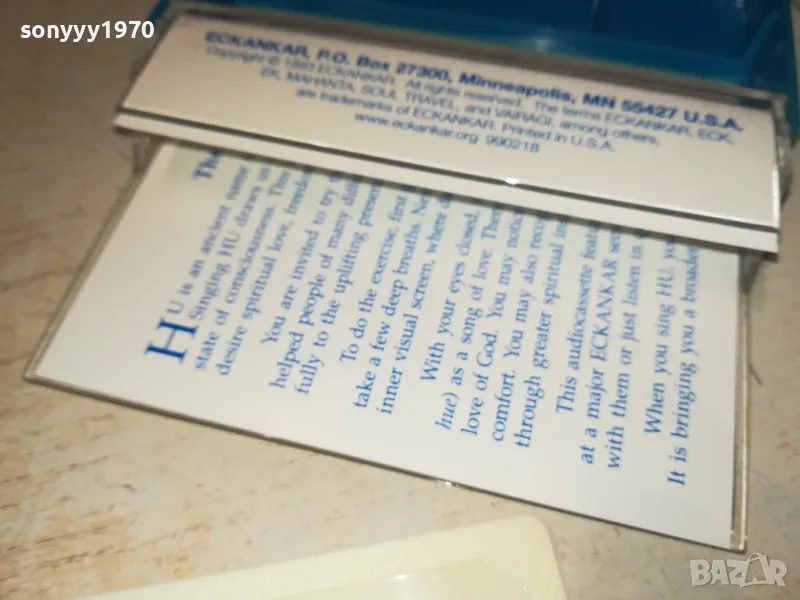 sonyyy1970
ECKANKAR, P.O. Box 27300, Minneapolis, MN 55427 U.S.A.
Copyright © 1993 ECKANKAR. All rights reserved. The terms ECKANKAR, ECK,
EK, MAHANTA, SOUL TRAVEL, and VAIRAGI, among others,
are trademarks of ECKANKAR. Printed in U.S.A.
www.eckankar.org 990218
The
HU is an ancient name
Singing HU draws
state of consciousness. This
desire spiritual love, freedom
You are invited to try
helped people of many
fully to the uplifting
To do the exercise, first
take a few deep breaths.
inner visual screen, where
With your eyes closed,
hue) as a song of love.
love of God. You may
comfort. You may also
through greater spiritual
This audiocassette
at a major ECKANKAR
with them or just listen in
When you sing HU,
It is bringing you a
BAZAR